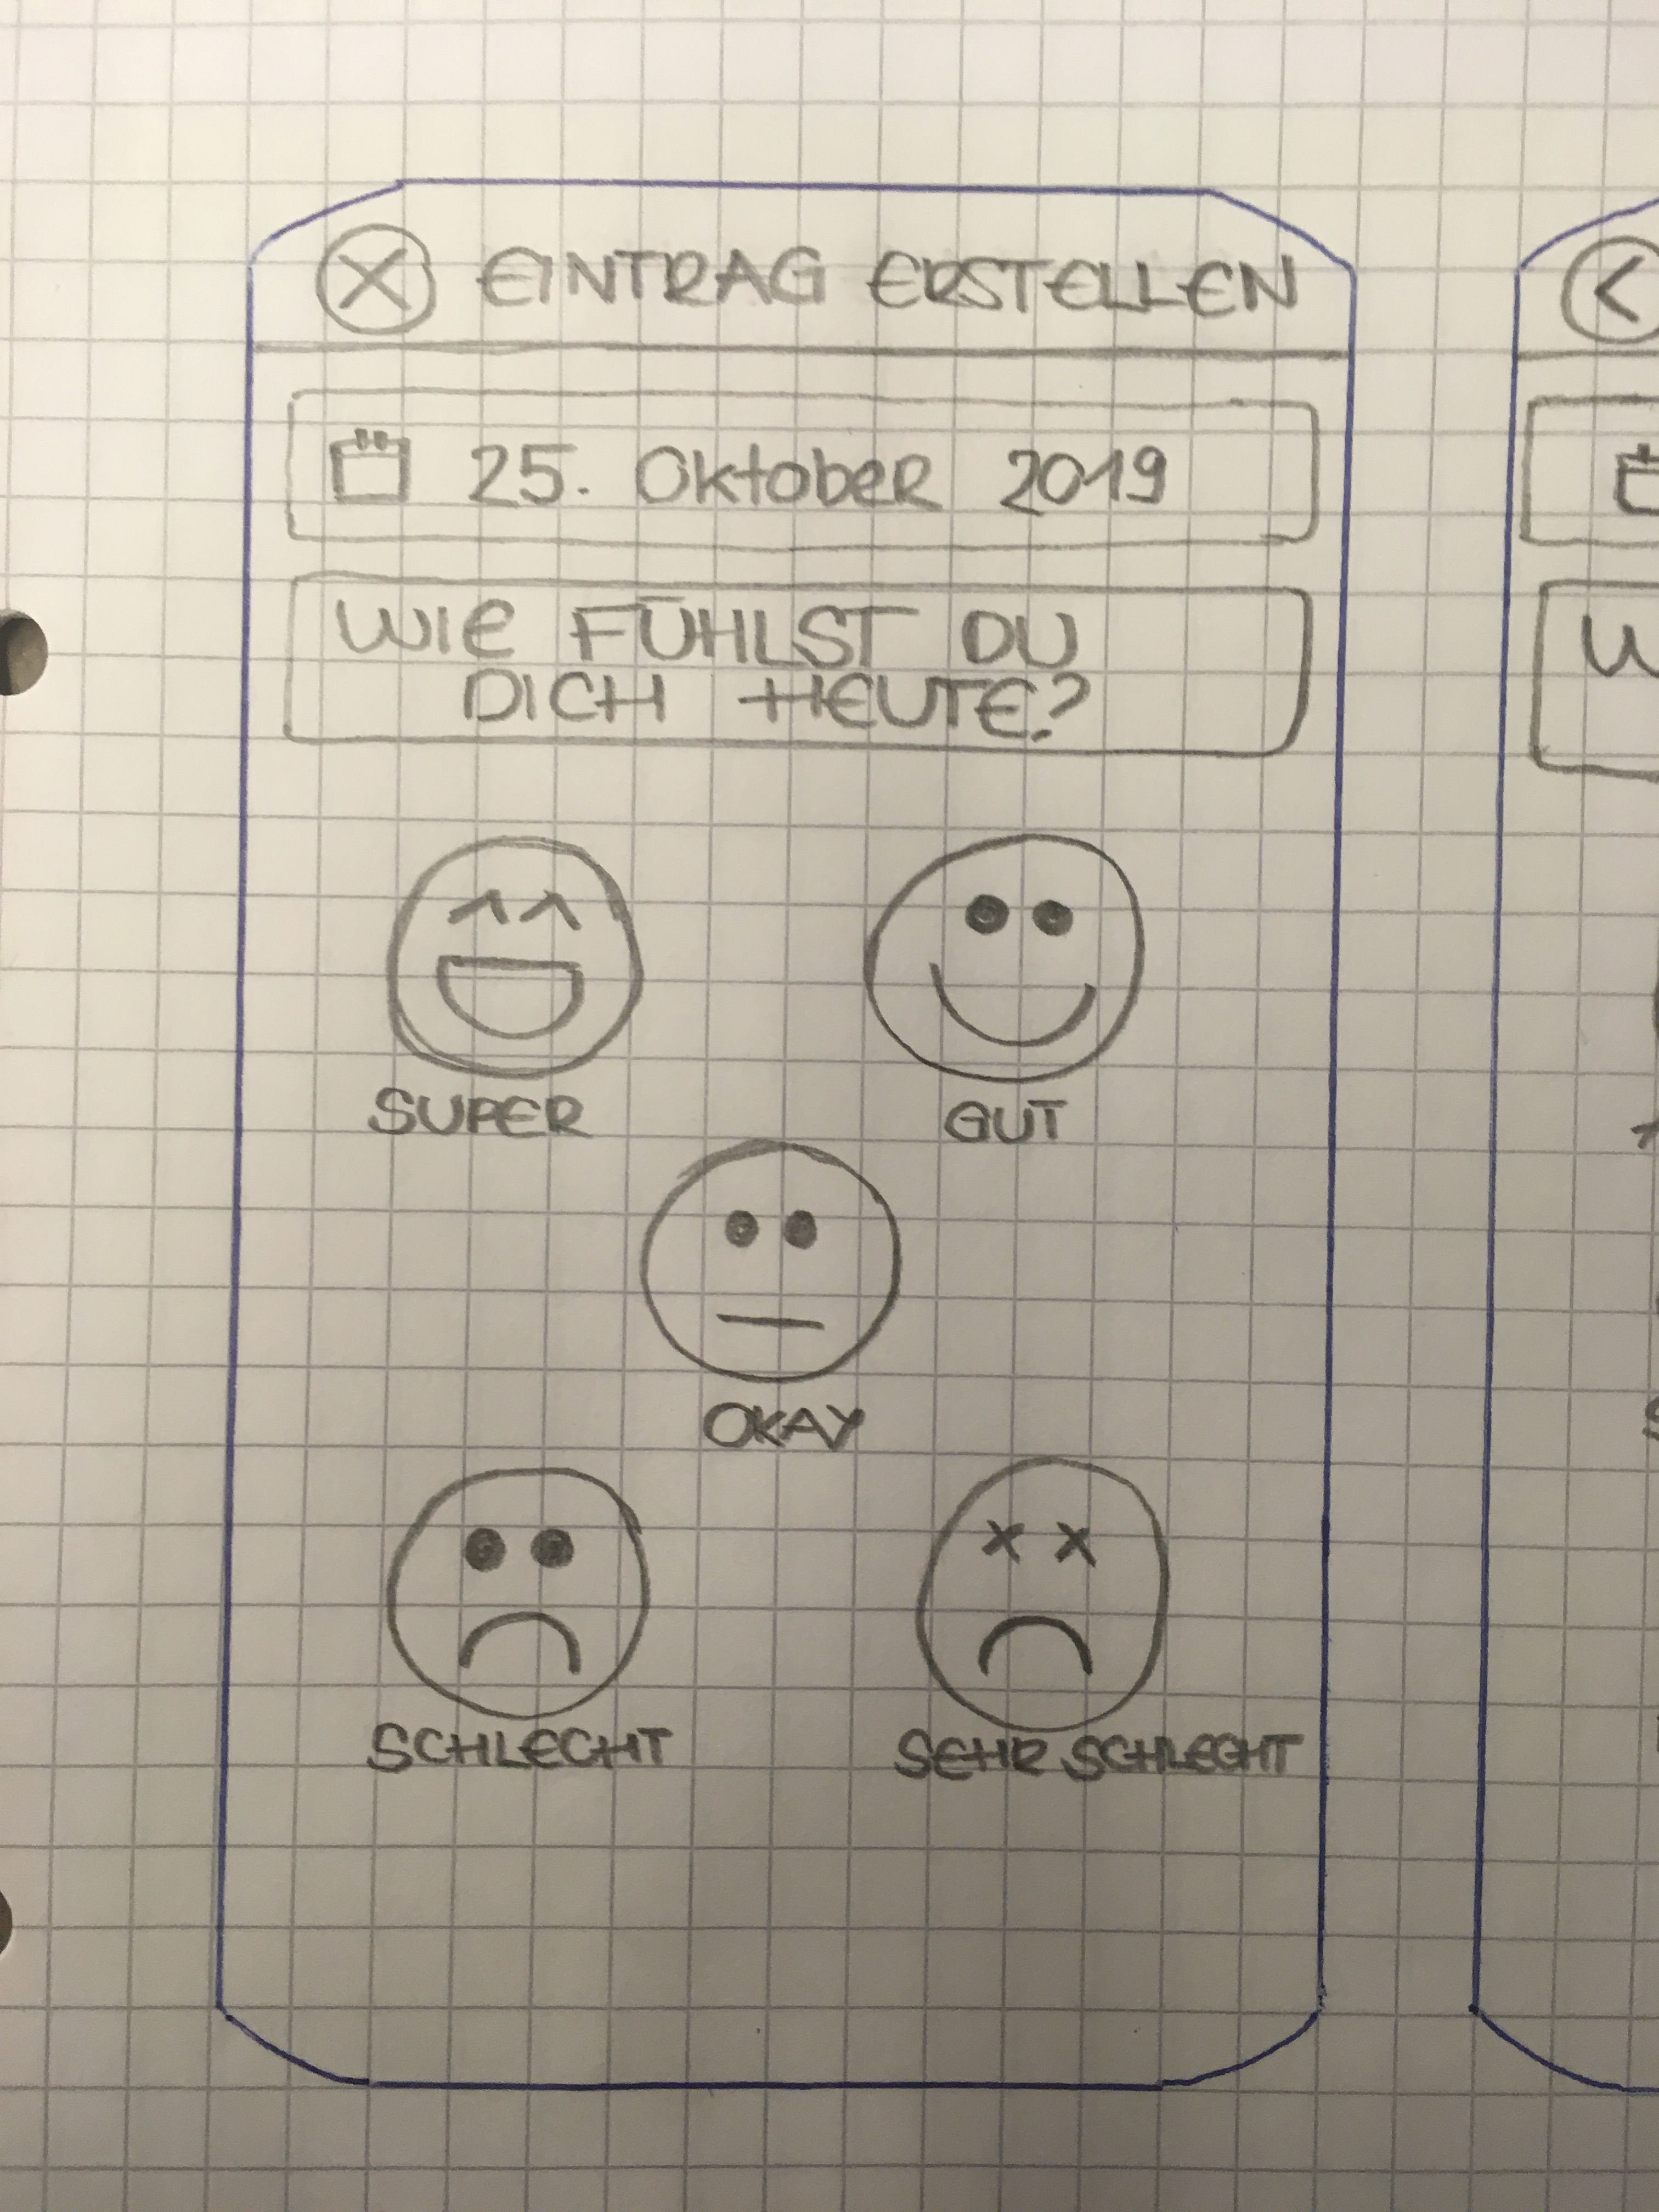 EINTRAG ERSTELLEN
25. Oktober 2019
WIE FÜHLST DU
DICH HEUTE?
SUPER
GUT
OKAY
SCHLECHT
SEHR SCHLECHT